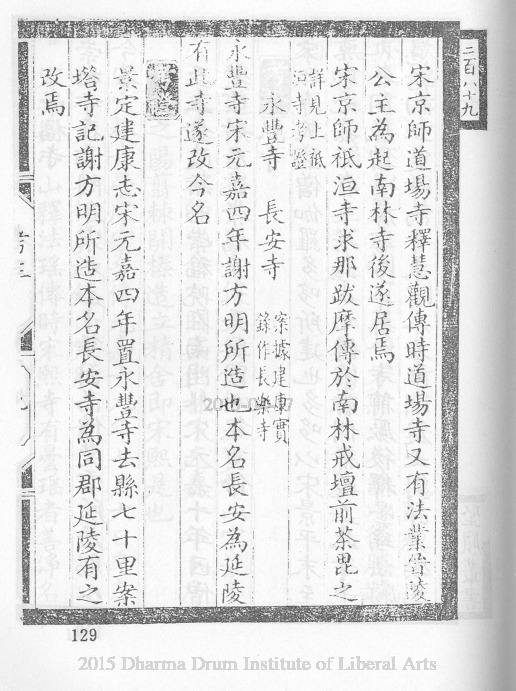 二百八九
宋京師道場寺釋慧觀傳時道場寺又有法業晉陵
公主為起南林寺後遂居焉
宋京師祇洹寺求那跋摩傳於南林戒壇前荼毘之
詳見上祇
洹寺考證
永豐寺 長安寺
案據建康實
錄作長樂寺
永豐寺宋元嘉四年謝方明所造也本名長安為延陵
有此寺遂改今名
景定建康志宋元嘉四年置永豐寺去縣七十里案
塔寺記謝方明所造本名長安寺為同郡延陵有之
改焉
129
2015 Dharma Drum Institute of Liberal Arts